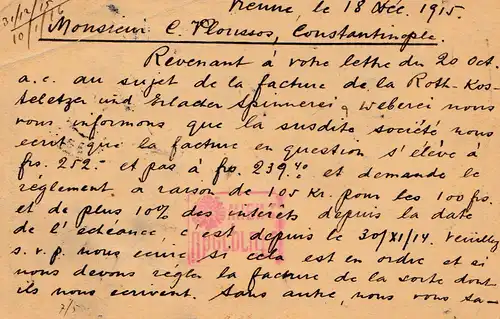 Vienne le 18 Déc. 1915.
31/12/15
10/1/16
Monsieur C. Ploussos, Constantinople.
Revenant à votre lettre du 20 Oct.
a.c. au sujet de la facture de la Roth-Kos-
teletzer und Erlacher Spinnerei & Weberei nous
vous informons que la susdite société nous
écrit que la facture en question s'élève à
frs. 252.- et pas à frs. 239.40 et demande le
règlement à raison de 105 Kr. pour les 100 frs.
et de plus 10% des interêts depuis la date
de l'echéance, c'est depuis le 30/XI/14. Veuillez
s.v.p. nous ecrire si cela est en ordre et si
nous devons régler la facture de la sorte dont
ils nous ecrivent. Sans autre, nous vous sa-
7/5